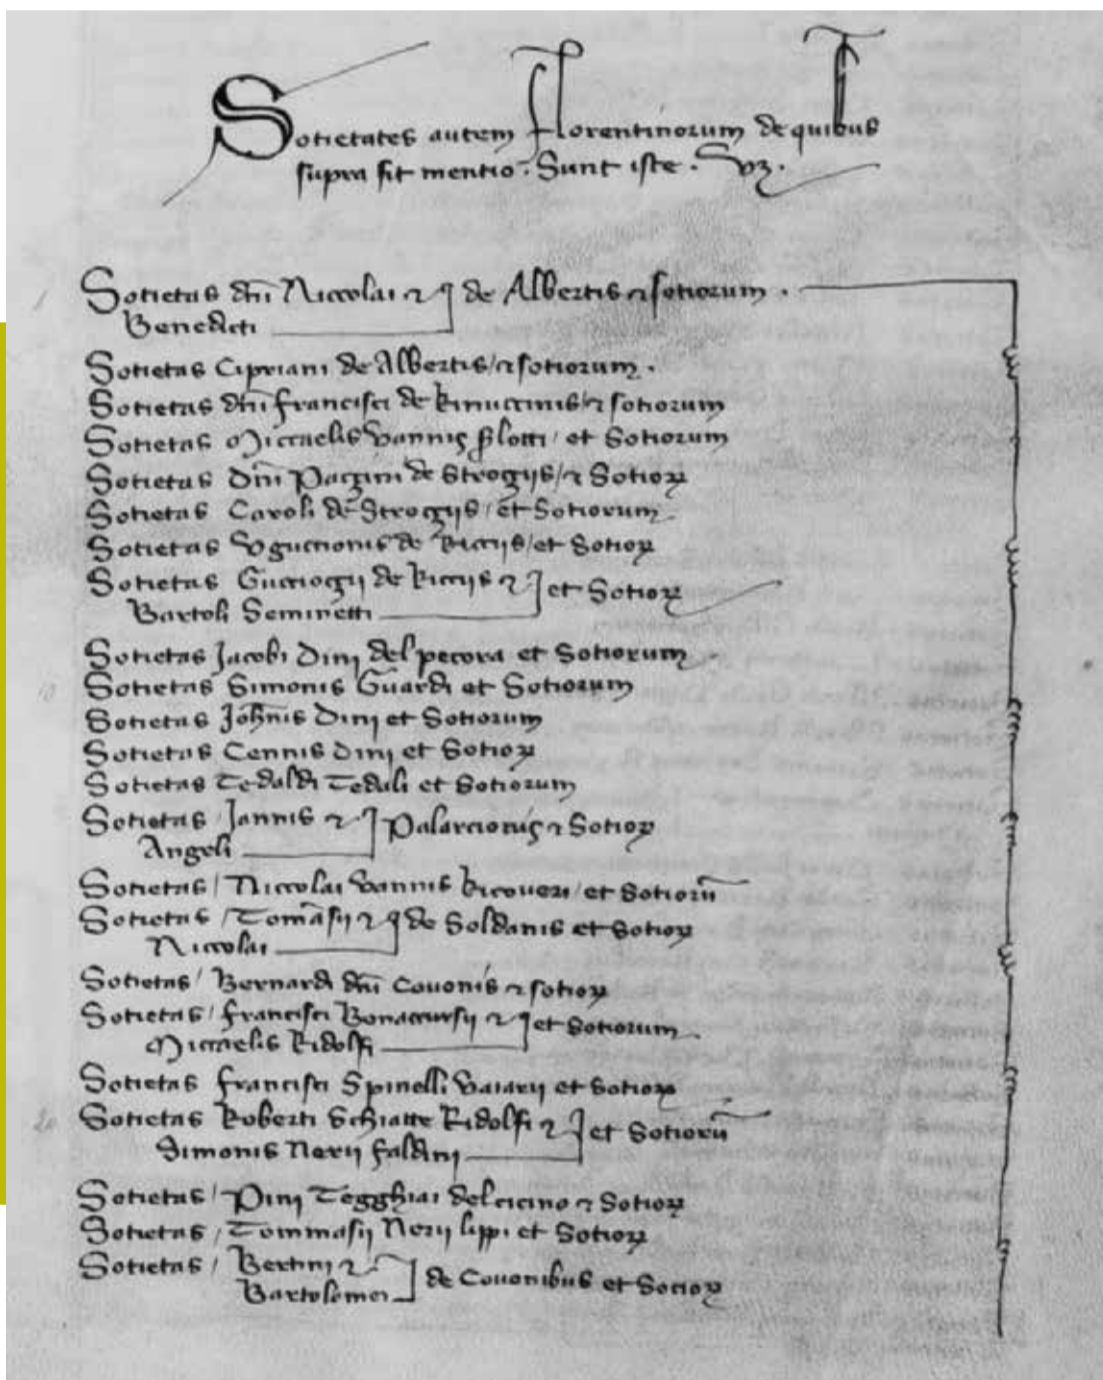 Sotietates autem Florentinorum de quibus
supra fit mentio. Sunt iste. Vz.
Sotietas dñi Niccolai et de Albertis et sotiorum.
Benedicti
Sotietas Cipriani de Albertis / et sotiorum.
Sotietas dñi Francisci de Rinuccinis / et sotiorum
Sotietas Miccaelis Vannis / et Sotiorum
Sotietas Dñi Paczini de Stroczijs / et Sotioꝝ
Sotietas Caroli de Stroczijs / et Sotiorum
Sotietas Vguccionis de Riccijs / et Sotioꝝ
Sotietas Guccioczij de Riccijs et et Sotioꝝ
Bartoli Seminetti
Sotietas Jacobi Dinj del pecora et Sotiorum
Sotietas Simonis Guardi et Sotiorum
Sotietas Joh̃nis Dinj et Sotiorum
Sotietas Cennis Dinj et Sotioꝝ
Sotietas Tedaldi Tedali et Sotiorum
Sotietas / Jannis et et Sotioꝝ
Angeli
Sotietas / Niccolai Vannis Ricoveri / et Sotiorū
Sotietas / Tomasij et de Soldanis et Sotioꝝ
Niccolai
Sotietas / Bernardi dñi Covonis et sotioꝝ
Sotietas / Francisci Bonaccursij et et Sotiorum
Miccaelis Ridolfi
Sotietas Francisci Spinelli Vaiarij et Sotioꝝ
Sotietas Roberti Schiatte Ridolfi et et Sotiorū
Simonis Nerij Faldinj
Sotietas / Pinj Tegghiai delcicino et Sotioꝝ
Sotietas / Tommasij Nerij lippi et Sotioꝝ
Sotietas / Bertini et de Covonibus et Socioꝝ
Bartolomei